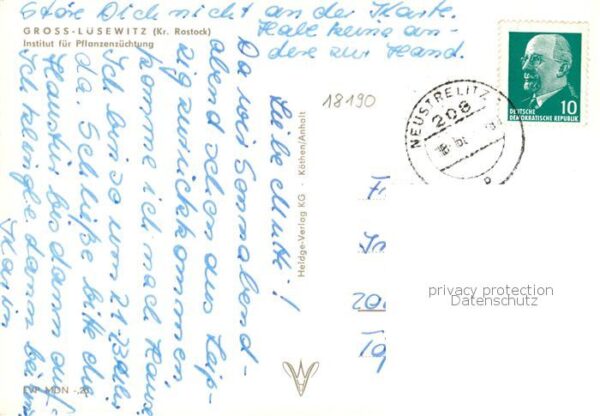 Störe Dich nicht an der Karte.
Habe keine an-
dere zur Hand.
GROSS-LÜSEWITZ (Kr. Rostock)
Institut für Pflanzenzüchtung
Liebe Mutti!
Da wir Sonnabend-
abend schon aus Leip-
zig zurückkommen,
komme ich nach Hause.
Ich bin so um 21-23 Uhr
da. Schließe bitte die
Haustür bis dann auf.
Ich klingle dann bei uns
Karin
EVP MDN -,20
Heldge-Verlag KG · Köthen/Anhalt
18190
NEUSTRELITZ
208
DEUTSCHE
DEMOKRATISCHE REPUBLIK
10
privacy protection
Datenschutz